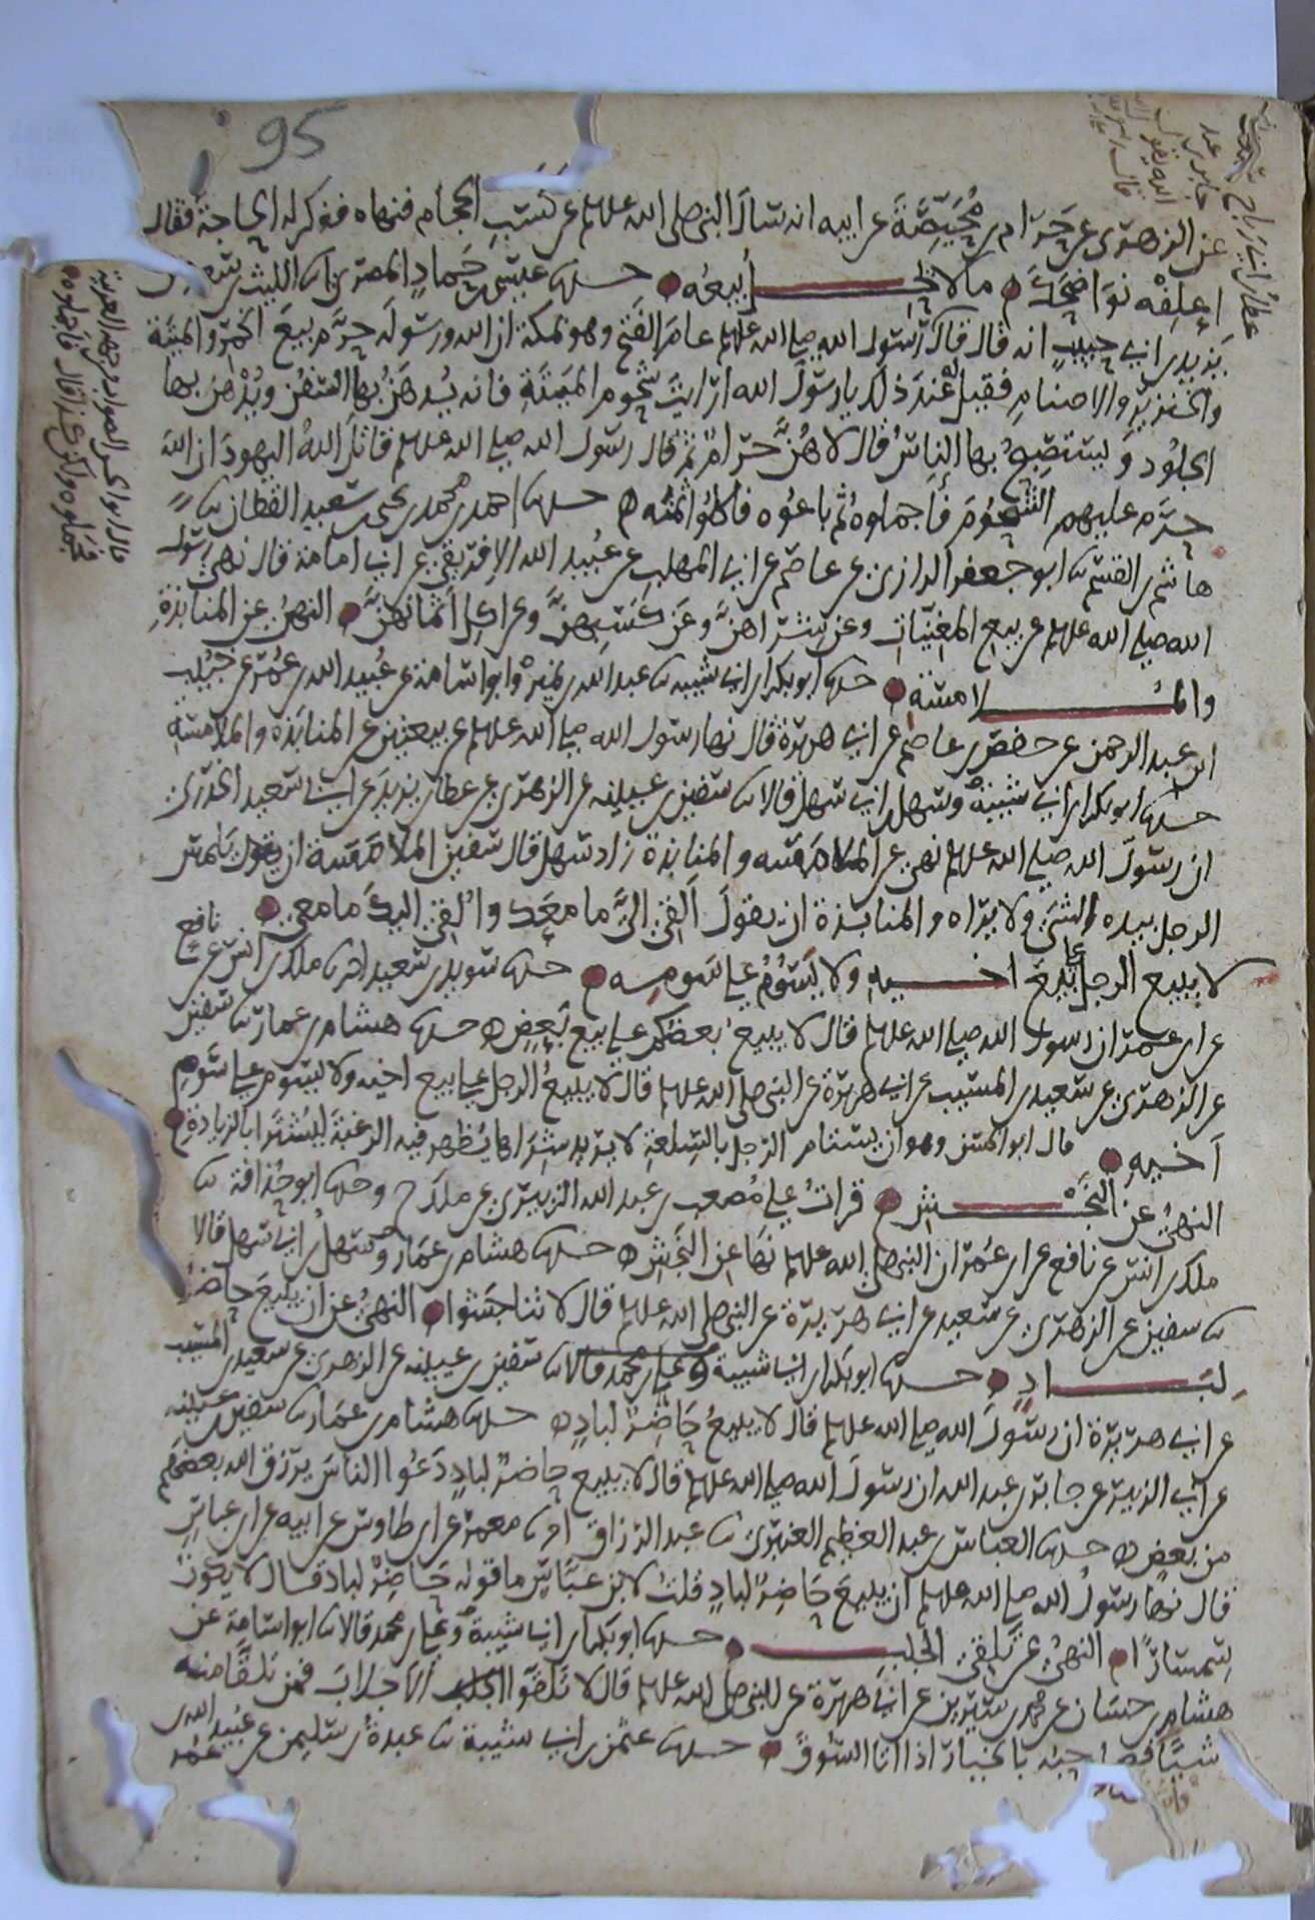 95
عن الزهري عن حرام بن محيصة عن ابيه انه سال النبي صلى الله عليه وسلم عن كسب الحجام فنهاه فذكر له الحاجة فقال
إعلفه نواضحك ما لا يحل بيعه حدثنا عيسى بن حماد المصري انا الليث بن سعد عن
يزيد بن ابي حبيب انه قال قال رسول الله صلى الله عليه وسلم عام الفتح وهو بمكة ان الله ورسوله حرم بيع الخمر والميتة
والخنزير والاصنام فقيل له عند ذلك يا رسول الله ارايت شحوم الميتة فانه يدهن بها السفن ويدهن بها
الجلود ويستصبح بها الناس قال لا هن حرام ثم قال رسول الله صلى الله عليه وسلم قاتل الله اليهود ان الله
حرم عليهم الشحوم فاجملوه ثم باعوه فاكلوا ثمنه حدثنا احمد بن محمد بن يحيى بن سعيد القطان نا
هاشم بن القسم نا ابو جعفر الرازي عن عاصم عن ابي المهلب عن عبيد الله الافريقي عن ابي امامة قال نهى رسول
الله صلى الله عليه وسلم عن بيع المغنيات وعن شراهن وعن كسبهن وعن اكل اثمانهن النهي عن المنابذة
والملامسة حدثنا ابو بكر بن ابي شيبة نا عبد الله بن نمير وابو اسامة عن عبيد الله بن عمر عن خبيب
ابن عبد الرحمن عن حفص بن عاصم عن ابي هريرة قال نها رسول الله صلى الله عليه وسلم عن بيعتين عن المنابذة والملامسة
حدثنا ابو بكر بن ابي شيبة وسهل بن ابي سهل قالا نا سفين بن عيينه عن الزهري عن عطا بن يزيد عن ابي سعيد الخدري
ان رسول الله صلى الله عليه وسلم نهى عن الملامسه والمنابذة زاد سهل قال سفين الملامسة ان يلمس
الرجل بيده الشي ولا يراه والمنابذة ان يقول الق الي ما معك والقي اليك ما معي
لا يبيع الرجل على بيع اخيه ولا يسوم على سومه حدثنا سويد بن سعيد انا ملك بن انس عن نافع
عن ابن عمر ان رسول الله صلى الله عليه وسلم قال لا يبيع بعضكم على بيع بعض حدثنا هشام بن عمار نا سفين
عن الزهري عن سعيد بن المسيب عن ابي هريرة عن النبي صلى الله عليه وسلم قال لا يبيع الرجل على بيع اخيه ولا يسوم على سوم
اخيه قال ابو الحسن وهو ان يستام الرجل بالسلعة لا يريد شراها يظهر فيه الرغبة ليشترا بالزيادة
النهي عن النجش قرات على مصعب بن عبد الله الزبيري عن ملك ح وحدثنا ابو حذافة نا
ملك بن انس عن نافع عن ابن عمر ان النبي صلى الله عليه وسلم نها عن النجش حدثنا هشام بن عمار وسهل بن ابي سهل قالا
نا سفين عن الزهري عن سعيد عن ابي هريرة عن النبي صلى الله عليه وسلم قال لا تناجشوا النهي عن ان يبيع حاضر
لباد حدثنا ابو بكر بن ابي شيبة وعلي بن محمد قالا نا سفين بن عيينه عن الزهري عن سعيد بن المسيب
عن ابي هريرة ان رسول الله صلى الله عليه وسلم قال لا يبيع حاضر لباد حدثنا هشام بن عمار نا سفين بن عيينه
عن ابي الزبير عن جابر بن عبد الله ان رسول الله صلى الله عليه وسلم قال لا يبيع حاضر لباد دعوا الناس يرزق الله بعضهم
من بعض حدثنا العباس بن عبد العظيم العنبري نا عبد الرزاق انا معمر عن ابن طاوس عن ابيه عن ابن عباس
قال نها رسول الله صلى الله عليه وسلم ان يبيع حاضر لباد قلت لابن عباس ما قوله حاضر لباد قال لا يكون
سمسارا النهي عن تلقي الجلب حدثنا ابو بكر بن ابي شيبة وعلي بن محمد قالا نا ابو اسامة عن
هشام بن حسان عن محمد بن سيرين عن ابي هريرة عن النبي صلى الله عليه وسلم قال لا تلقوا الاجلاب فمن تلقا منه
شيا فصاحبه بالخيار اذا اتا السوق حدثنا عثمن بن ابي شيبة نا عبدة بن سليمن عن عبيد الله بن عمر
عطا بن ابي رباح